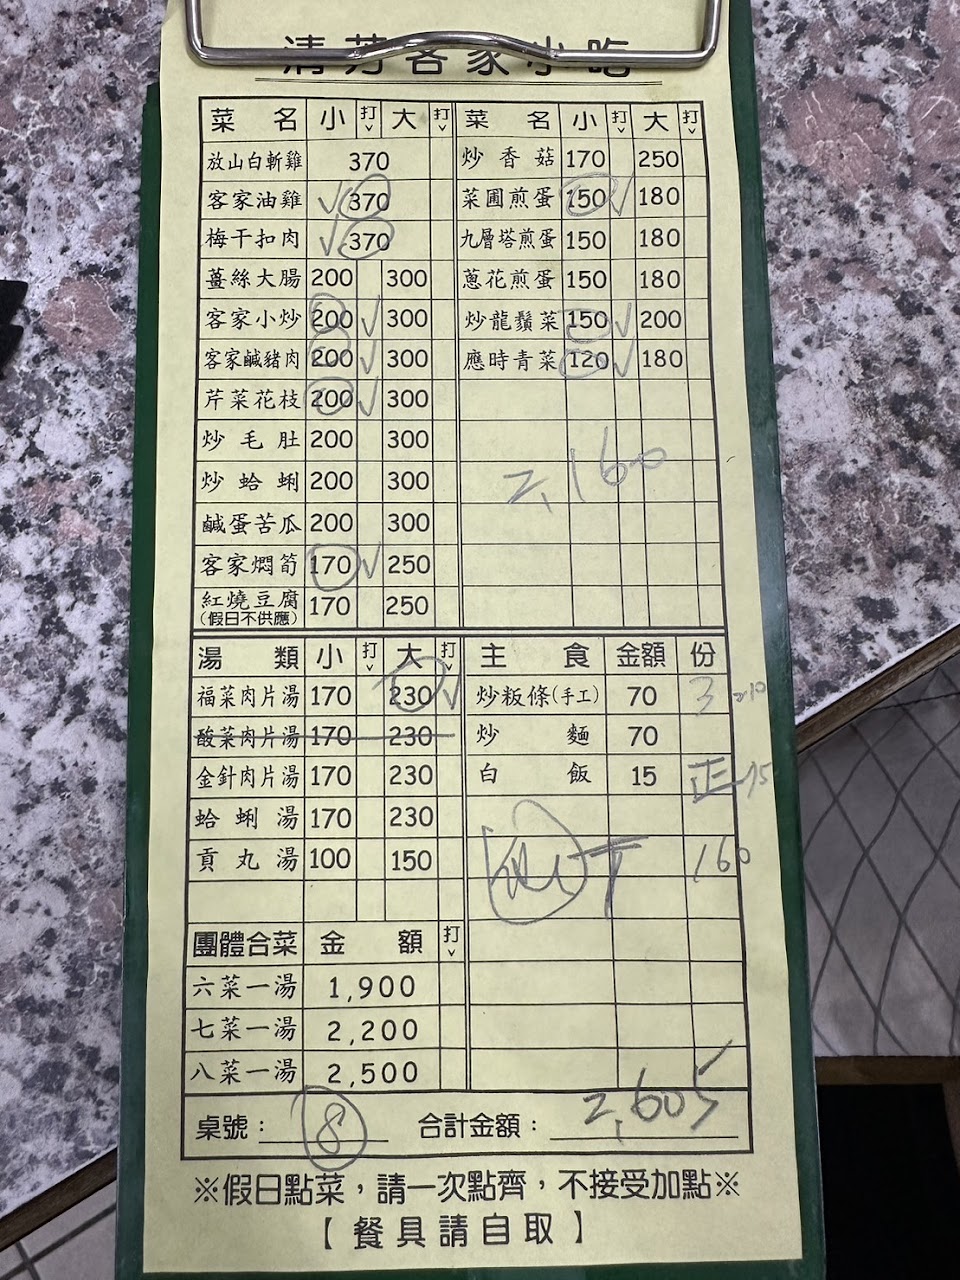 清芳客家小吃
菜名 小 打ˇ 大 打ˇ 菜名 小 打ˇ 大 打ˇ
放山白斬雞 370 炒香菇 170 250
客家油雞 ✓ 370 菜圃煎蛋 150 ✓ 180
梅干扣肉 ✓ 370 九層塔煎蛋 150 180
薑絲大腸 200 300 蔥花煎蛋 150 180
客家小炒 200 ✓ 300 炒龍鬚菜 150 ✓ 200
客家鹹豬肉 200 ✓ 300 應時青菜 120 ✓ 180
芹菜花枝 200 ✓ 300
炒毛肚 200 300
炒蛤蜊 200 300 2,160
鹹蛋苦瓜 200 300
客家燜筍 170 ✓ 250
紅燒豆腐 170 250
(假日不供應)
湯類 小 打ˇ 大 打ˇ 主食 金額 份
福菜肉片湯 170 230 ✓ 炒粄條(手工) 70 3 210
酸菜肉片湯 170 230 炒麵 70
金針肉片湯 170 230 白飯 15 正 75
蛤蜊湯 170 230
貢丸湯 100 150 160
團體合菜 金額 打ˇ
六菜一湯 1,900
七菜一湯 2,200
八菜一湯 2,500
桌號： 8 合計金額： 2,605
※假日點菜，請一次點齊，不接受加點※
【餐具請自取】